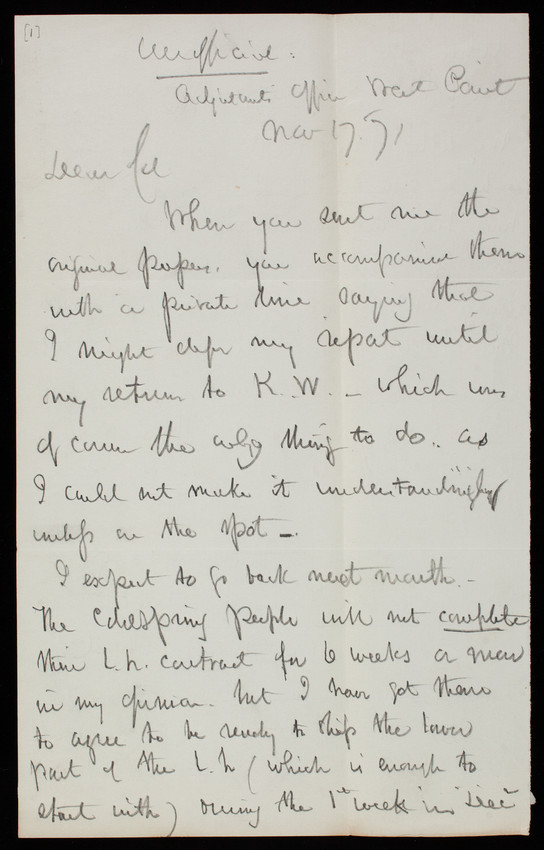 [1]
Unofficial:
Adjutants Office West Point
Nov 17. 71
Dear Col
When you sent me the
original papers. you accompanied them
with a private line saying that
I might defer my report until
my return to K. W. – which was
of course the only thing to do. as
I could not make it understandingly
unless on the spot –
I expect to go back next month. –
The Coldspring people will not complete
their L. h. contract for 6 weeks or more
in my opinion. but I have got them
to agree to be ready to ship the lower
part of the L. h (which is enough to
start with) during the 1st week in Decr